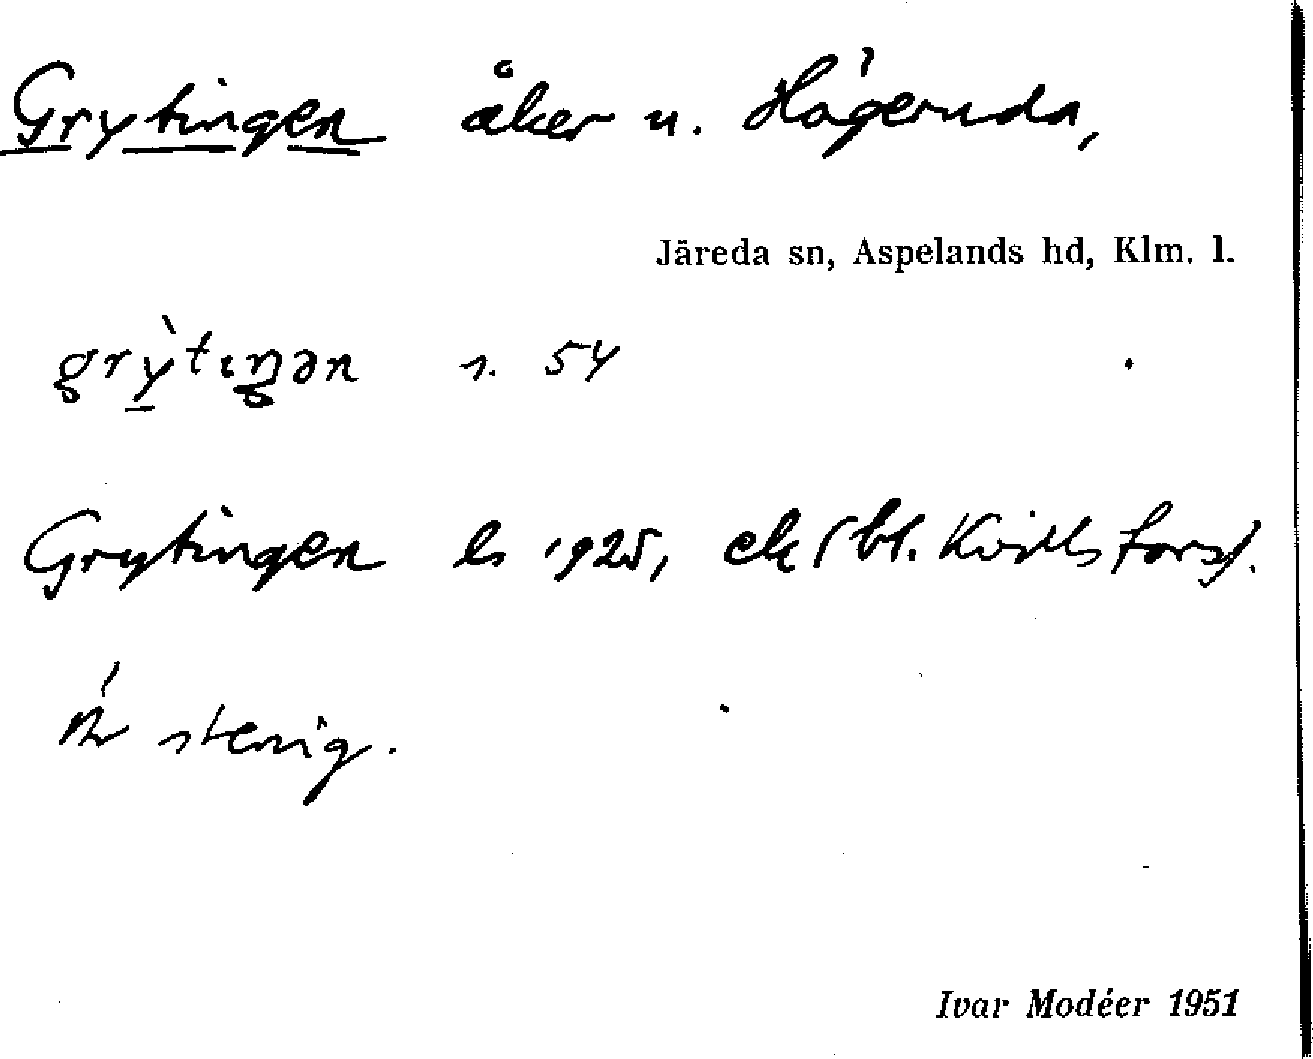 Grytingen åker u. Hägeruda,
Järeda sn, Aspelands hd, Klm. l.
grỳtıŋən s. 54
Grytingen ls 1925, ek (bl. Kvillsfors).
Är stenig.
Ivar Modéer 1951